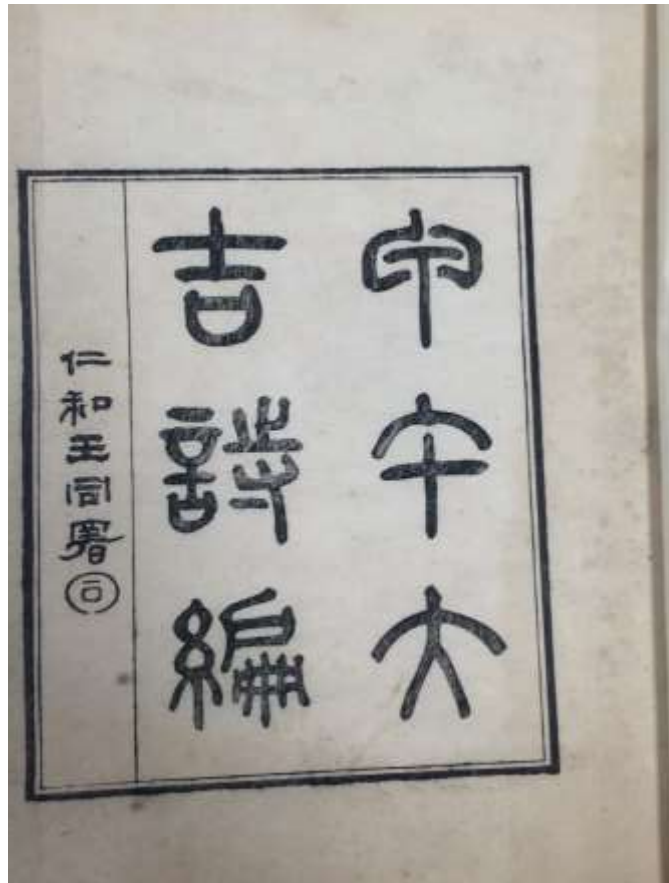 甲午大
吉詩編
仁和王同署
同